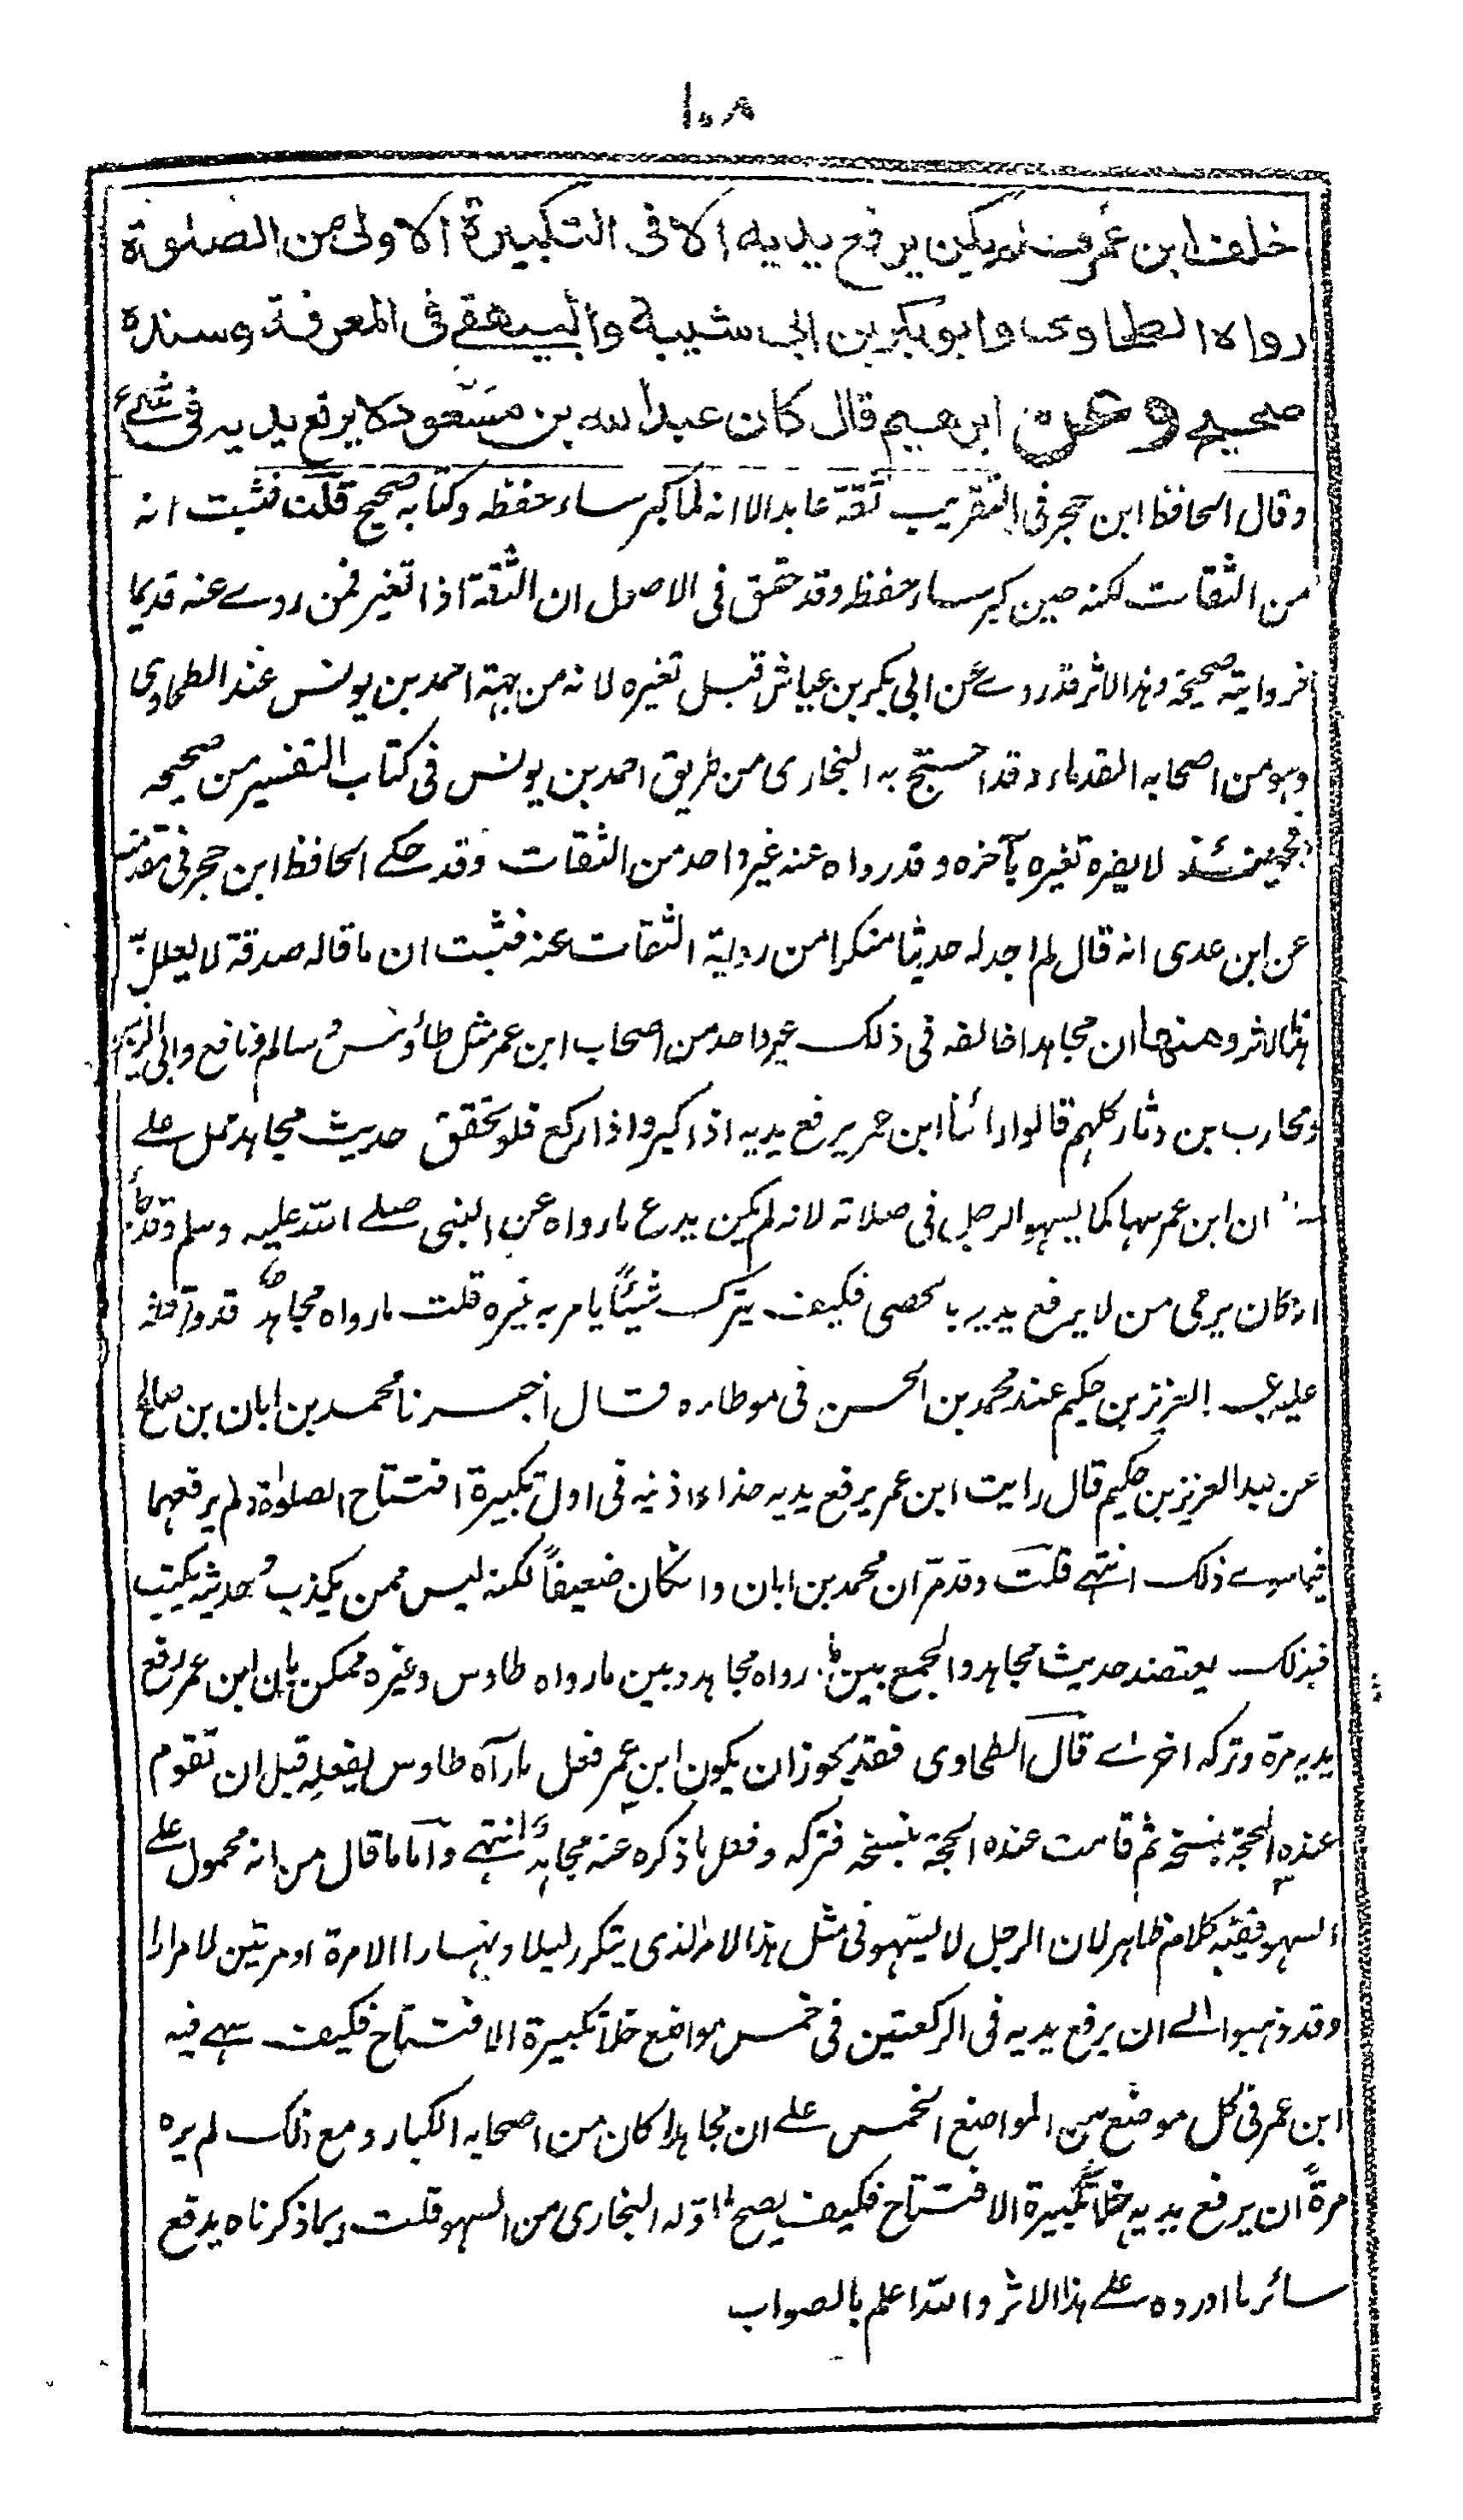 ١٠٨
خلف ابن عمر فلم يكن يرفع يديه الا فى التكبيرة الاولى من الصلوة
رواه الطحاوى وابو بكر بن ابى شيبة والبيهقے فى المعرفة وسنده
صحيح وعن ابرهيم قال كان عبد الله بن مسعود لا يرفع يديه فى شئ
وقال الحافظ ابن حجر فى التقريب ثقة عابد الا انه لما كبر ساء حفظه وكتابه صحيح قلت فثبت انه
من الثقات لكنه حين كبر ساء حفظه وقد حقق فى الاصول ان الثقة اذا تغير فمن روے عنه قديما
فروايته صحيحة وهذا الاثر قد روے عن ابى بكر بن عياش قبل تغيره لانه من جهة احمد بن يونس عند الطحاوى
وهو من اصحابه القدماء وقد احتج به البخارى من طريق احمد بن يونس فى كتاب التفسير من صحيحه
فحينئذ لا يضره تغيره بآخره وقد رواه عنه غير واحد من الثقات وقد حكے الحافظ ابن حجر فى مقدمته
عن ابن عدى انه قال لم اجد له حديثا منكرا من رواية الثقات عنه فثبت ان ما قاله صدقة لا يعلل به
هذا الاثر ومنها ان مجاهدا خالفه فى ذلك غير واحد من اصحاب ابن عمر مثل طاؤس وسالم ونافع وابى الزبير
ومحارب بن دثار كلهم قالوا رأينا ابن عمر يرفع يديه اذا كبر واذا ركع فلو تحقق حديث مجاهد حمل علے
ان ابن عمر سها كما يسهو الرجل فى صلاته لانه لم يكن يدع ما رواه عن النبى صلے الله عليه وسلم وقد
انه كان يرمى من لا يرفع يديه بالحصى فكيف يترك شيئًا يامر به غيره قلت ما رواه مجاهد قد وافقه
عليه عبد العزيز بن حكيم عند محمد بن الحسن فى موطاه قال اخبرنا محمد بن ابان بن صالح
عن عبد العزيز بن حكيم قال رايت ابن عمر يرفع يديه حذاء اذنيه فى اول تكبيرة افتتاح الصلوٰة ولم يرفعهما
فيما سوے ذلك انتهے قلت وقد مر ان محمد بن ابان وان كان ضعيفًا لكنه ليس ممن يكذب وحديثه يكتب
فبذلك يعتضد حديث مجاهد والجمع بين ما رواه مجاهد وبين ما رواه طاوس وغيره ممكن بان ابن عمر رفع
يديه مرة وتركه اخرے قال الطحاوى فقد يجوز ان يكون ابن عمر فعل ما رآه طاوس يفعله قبل ان تقوم
عنده الحجة بنسخه ثم قامت عنده الحجة بنسخه فتركه وفعل ما ذكره عنه مجاهد انتهے واما ما قال من انه محمول علے
السهو ففيه كلام ظاهر لان الرجل لا يسهو فى مثل هذا الامر الذى يتكرر ليلا ونهارا الا مرة او مرتين لا مرارا
وقد ذهبوا الے ان يرفع يديه فى الركعتين فى خمس مواضع خلا تكبيرة الافتتاح فكيف سهے فيه
ابن عمر فى كل موضع من المواضع الخمس علے ان مجاهدا كان من اصحابه الكبار ومع ذلك لم يره
مرةً ان يرفع يديه خلا تكبيرة الافتتاح فكيف يصح ما اوّله البخارى من السهو قلت وبما ذكرناه يدفع
سائر ما اورده علے هذا الاثر والله اعلم بالصواب